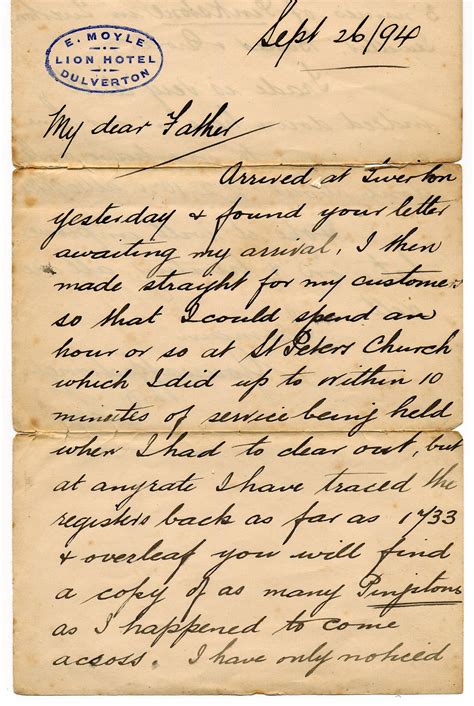 E. MOYLE
LION HOTEL
DULVERTON
Sept 26/94
My dear Father
Arrived at Tiverton
yesterday & found your letter
awaiting my arrival, I then
made straight for my customers
so that I could spend an
hour or so at St Peters Church
which I did up to within 10
minutes of service being held
when I had to clear out, but
at anyrate I have traced the
registers back as far as 1733
& overleaf you will find
a copy of as many Pingstone
as I happened to come
acsoss. I have only noticed